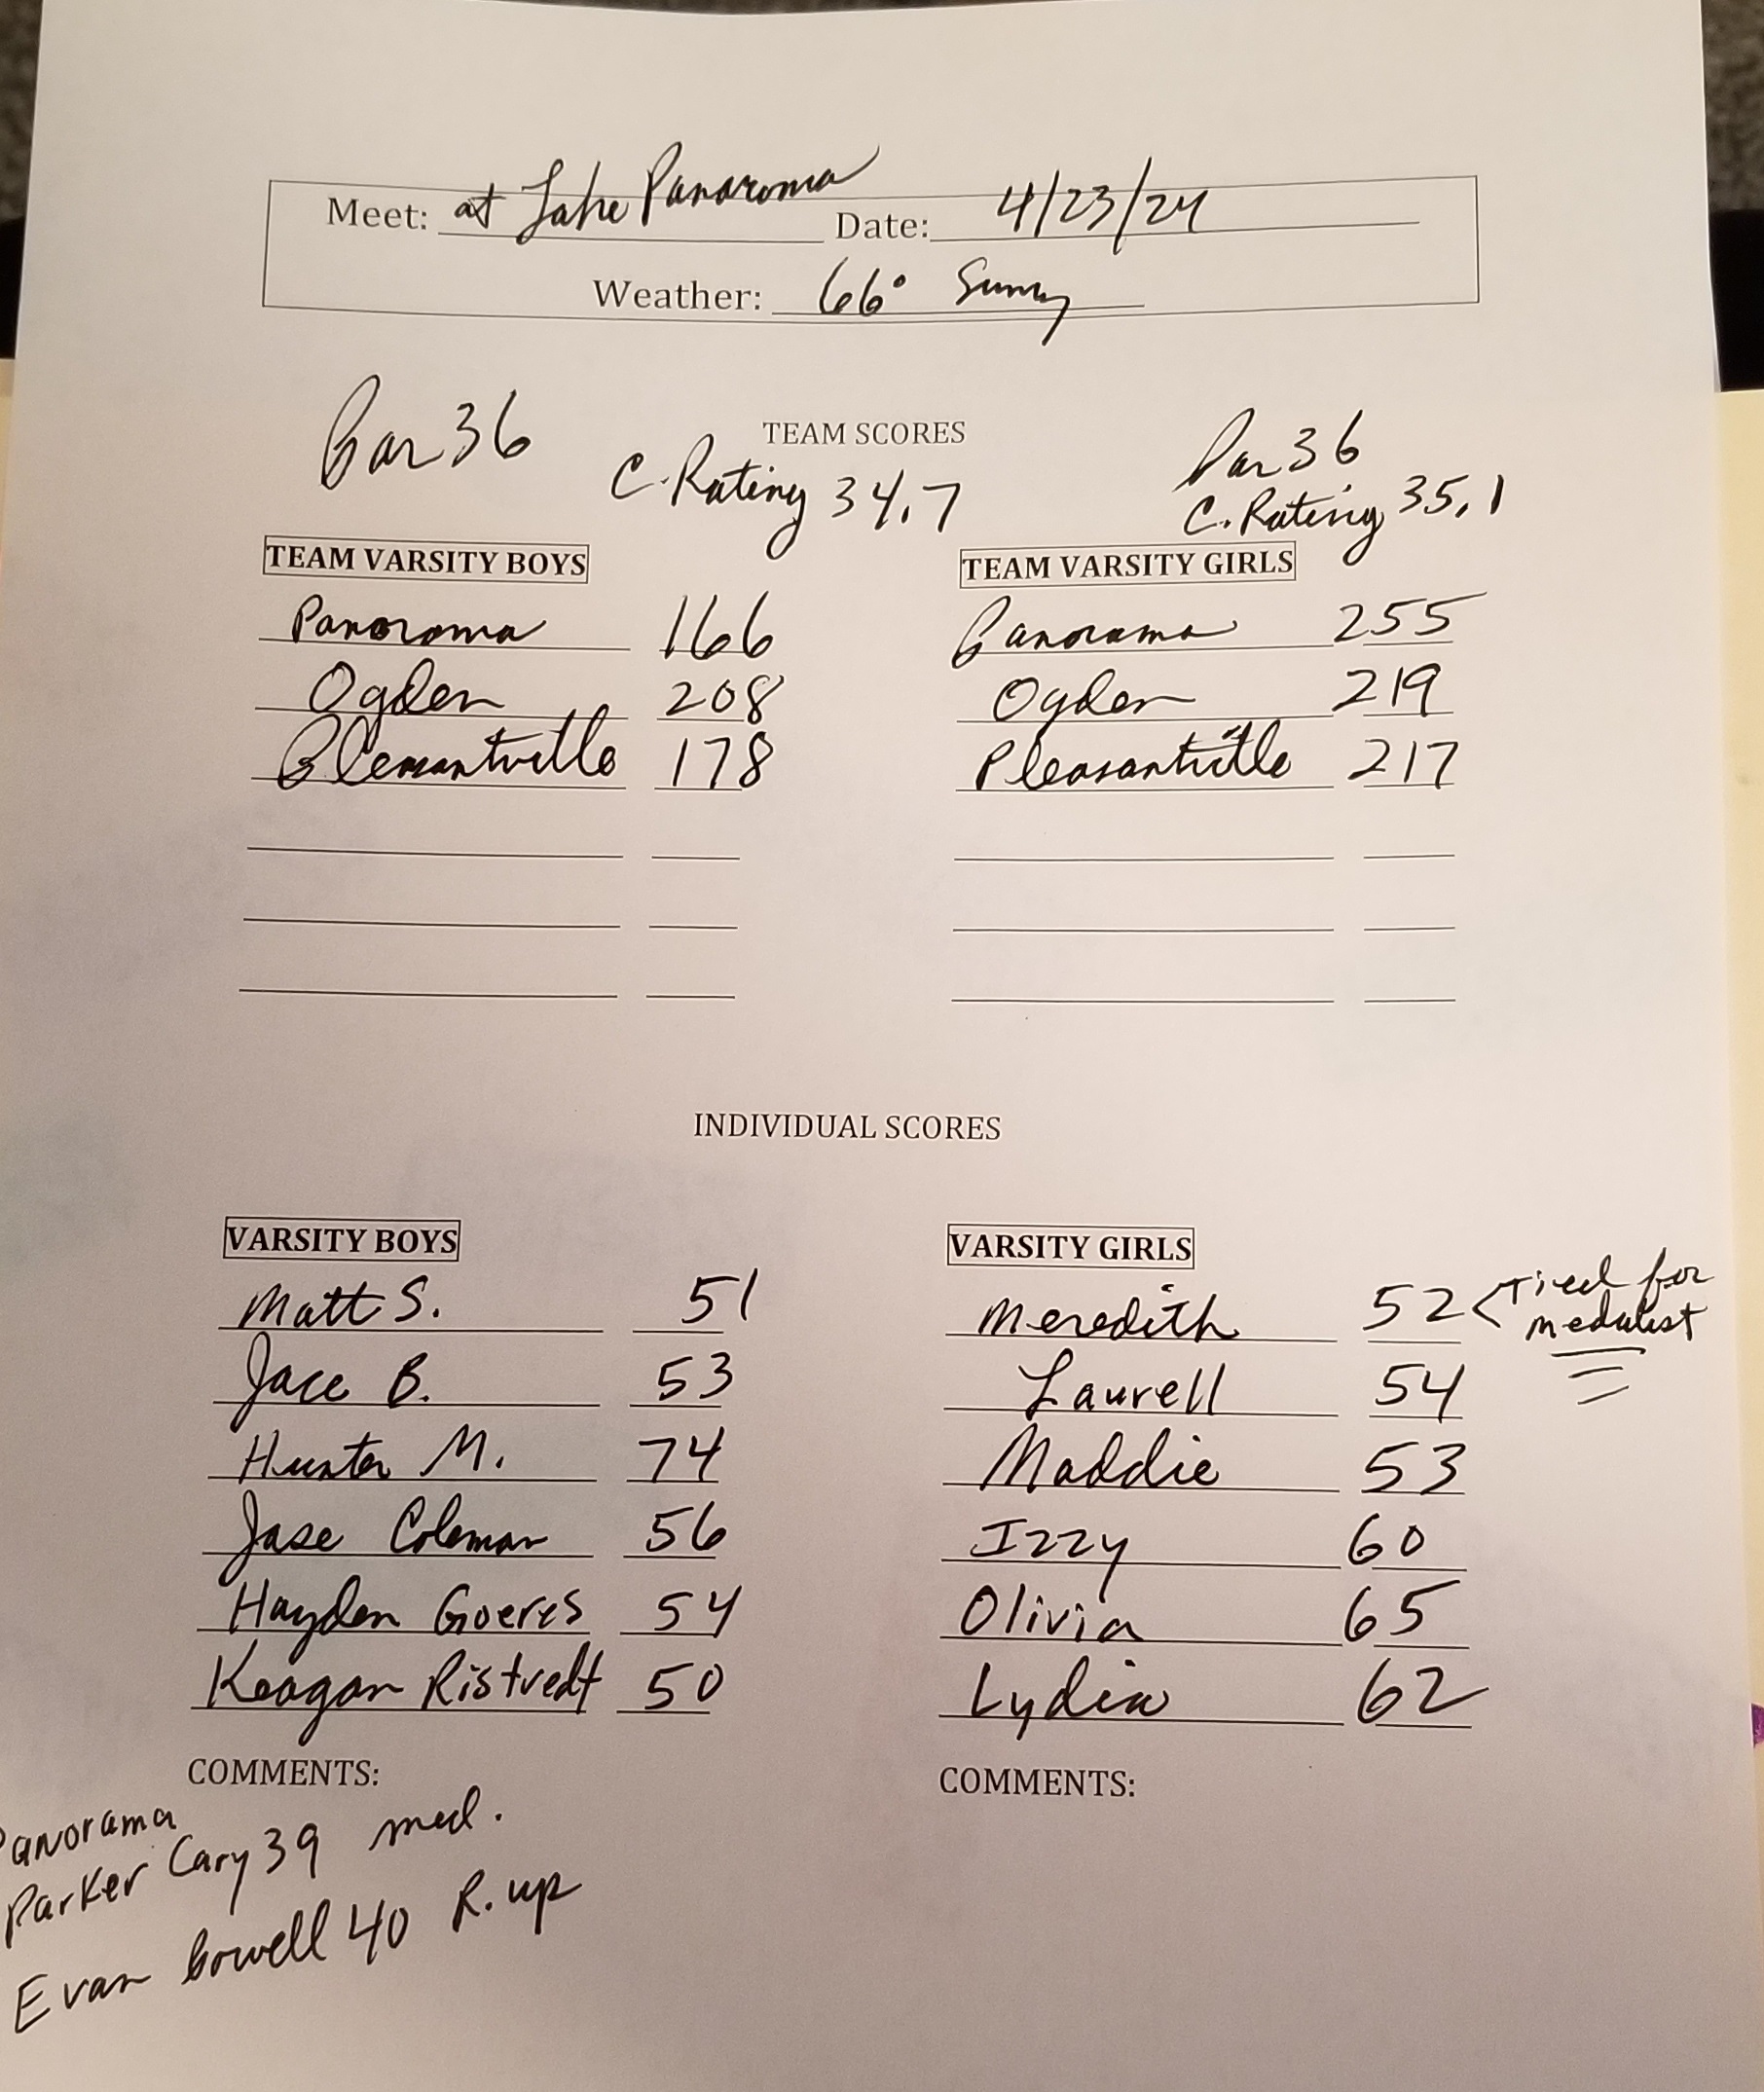 Meet: at Lake Panaroma Date: 4/23/24
Weather: 66° Sunny
Par 36
TEAM SCORES
C. Rating 34.7
Par 36
C. Rating 35.1
TEAM VARSITY BOYS
Panorama 166
Ogden 208
Pleasantville 178
TEAM VARSITY GIRLS
Panorama 255
Ogden 219
Pleasantville 217
INDIVIDUAL SCORES
VARSITY BOYS
Matt S. 51
Jace B. 53
Hunter M. 74
Jase Coleman 56
Hayden Goeres 54
Keagan Ristvedt 50
COMMENTS:
Panorama
Parker Cary 39 med.
Evan 40 R. up
VARSITY GIRLS
Meredith 52 < Tied for
medalist
Laurell 54
Maddie 53
Izzy 60
Olivia 65
Lydia 62
COMMENTS: